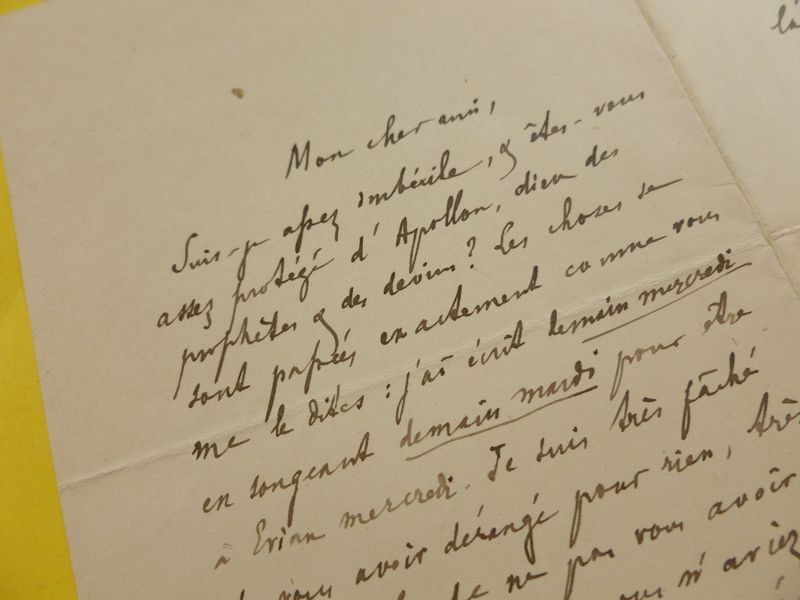 Mon cher ami,
Suis-je assez imbécile, & êtes-vous
assez protégé d'Apollon, dieu des
prophètes & des devins? Les choses se
sont passées exactement comme vous
me le dites : j'ai écrit demain mercredi
en songeant demain mardi pour être
à Evian mercredi. Je suis très fâché
vous avoir dérangé pour rien, très
de ne pas vous avoir
vous m'aviez